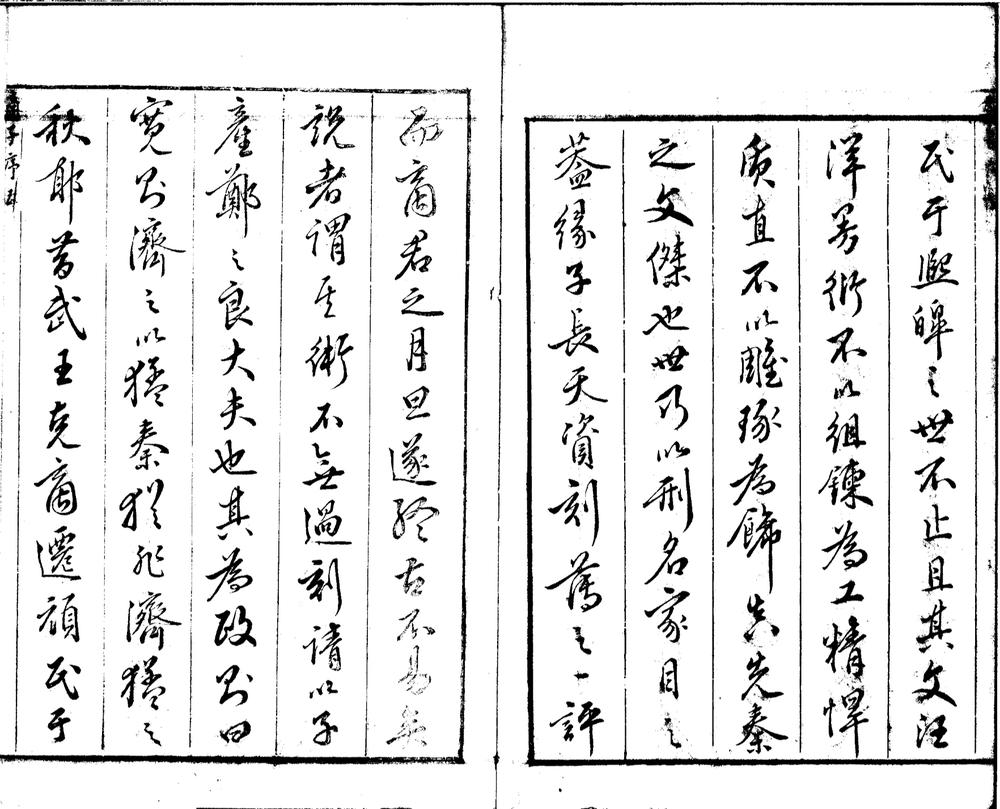 民于熙皡之世不止且其文汪
洋男術不以組鍊為工精悍
質直不以雕琢為飾真先秦
之文傑也世乃以刑名家目之
蓋緣子長天資刻薄之一評
而商君之月旦遂終古不易矣
說者謂其術不無過刻請以子
產鄭之良大夫也其為政則曰
寬則濟之以猛秦猶非濟猛之
秋耶昔武王克商遷頑民于
子序五